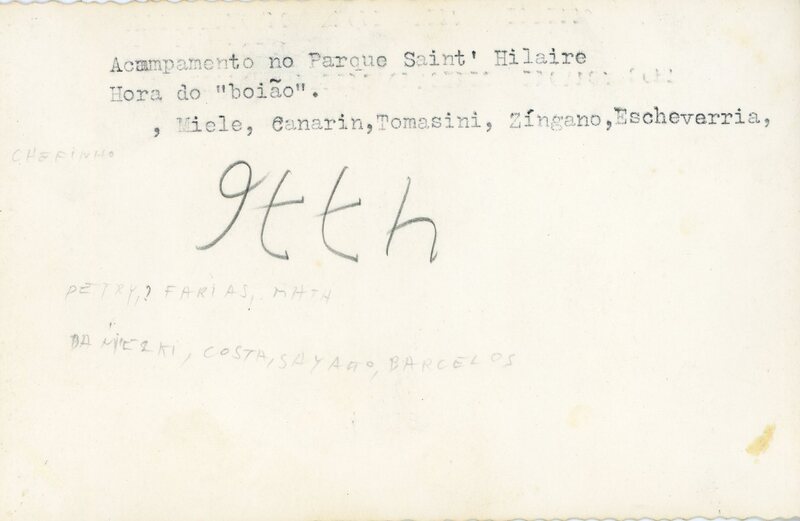 Acampamento no Parque Saint' Hilaire
Hora do "boião".
, Miele, Canarin,Tomasini, Zíngano,Escheverria,
CHEFINHO
PETRY,? FARIAS,
COSTA, SAYAGO, BARCELOS